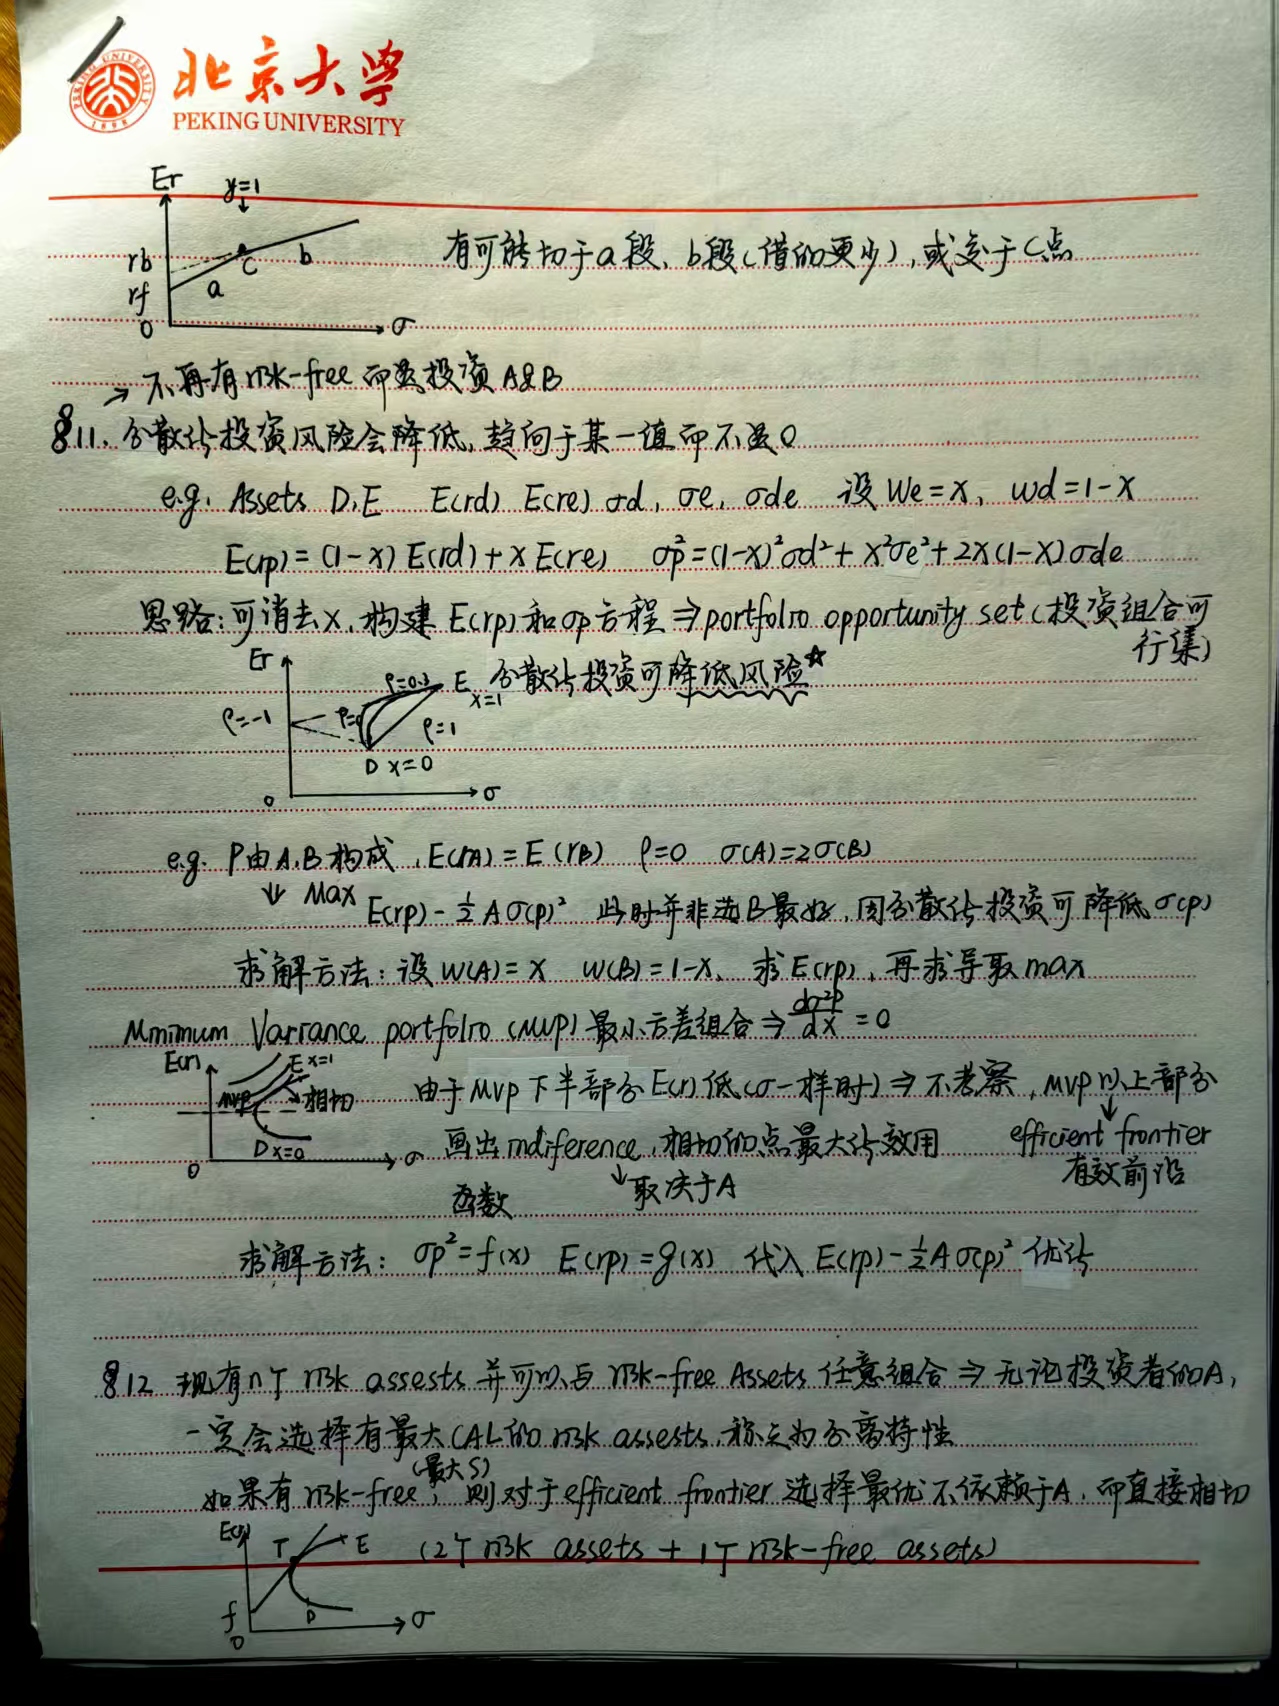 北京大学
PEKING UNIVERSITY
PEKING UNIVERSITY 1898
Er y=1
rb C b
rf a
0 σ
有可能切于a段、b段(借的更少),或交于C点
→ 不再有risk-free 而是投资A&B
§11. 分散化投资风险会降低,趋向于某一值而不是0
e.g. Assets D,E E(rd) E(re) σd, σe, σde 设 We=x, wd=1-x
E(rp)=(1-x)E(rd)+xE(re) σp²=(1-x)²σd²+x²σe²+2x(1-x)σde
思路:可消去x,构建E(rp)和σp方程⇒portfolio opportunity set(投资组合可
行集)
Er
ρ=0.3 E x=1 分散化投资可降低风险☆
ρ=-1 ρ=0 ρ=1
D x=0
0 σ
e.g. P由A,B构成,E(rA)=E(rB) ρ=0 σ(A)=2σ(B)
↓ Max E(rp)-½Aσ(p)² 此时并非选B最好,因分散化投资可降低σ(p)
求解方法:设w(A)=x w(B)=1-x,求E(rp),再求导取max
Minimum Variance portfolio (MVP) 最小方差组合⇒dσ²p/dx=0
E(r) E x=1
MVP 相切 由于MVP下半部分E(r)低(σ一样时)⇒不考察,MVP以上部分
D x=0
0 σ 画出indiference,相切的点最大化效用 ↓ efficient frontier
函数 ↓取决于A 有效前沿
求解方法:σp²=f(x) E(rp)=g(x) 代入E(rp)-½Aσ(p)² 优化
§12 现有n个risk assests 并可以与risk-free Assets 任意组合⇒无论投资者的A,
一定会选择有最大CAL的risk assests,称之为分离特性
(最大S)
如果有risk-free,则对于efficient frontier 选择最优不依赖于A,而直接相切
E(r) T E (2个risk assets + 1个risk-free assets)
f D
0 σ